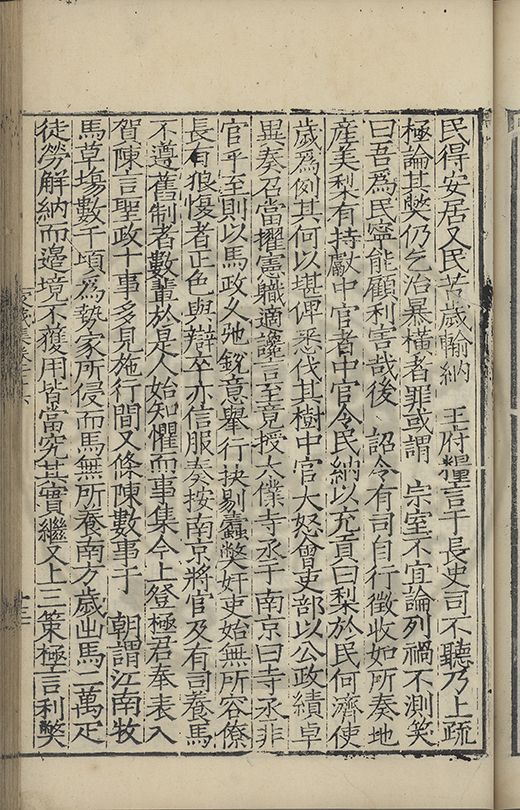 民得安居又民苦歲輸納　王府糧言于長史司不聽乃上疏
極論其獘仍乞治暴橫者罪或謂　宗室不宜論列禍不測笑
曰吾爲民寧能顧利害哉後　詔令有司自行徵收如所奏地
産美梨有持獻中官者中官令民納以充貢曰梨於民何濟使
歲爲例其何以堪俾悉伐其樹中官大怒會吏部以公政績卓
異奏召當擢憲職適讒言至竟授太僕寺丞于南京曰寺丞非
官乎至則以馬政久弛銳意舉行抉剔蠹獘奸吏始無所容僚
長有狠愎者正色與辯卒亦信服奏按南京將官及有司養馬
不遵舊制者數輩於是人始知懼而事集今上登極君奉表入
賀陳言聖政十事多見施行間又條陳數事于　朝謂江南牧
馬草塲數千頃爲勢家所侵而馬無所養南方歲出馬二萬疋
徒勞解納而邉境不獲用皆當究其實繼又上三策極言利獘